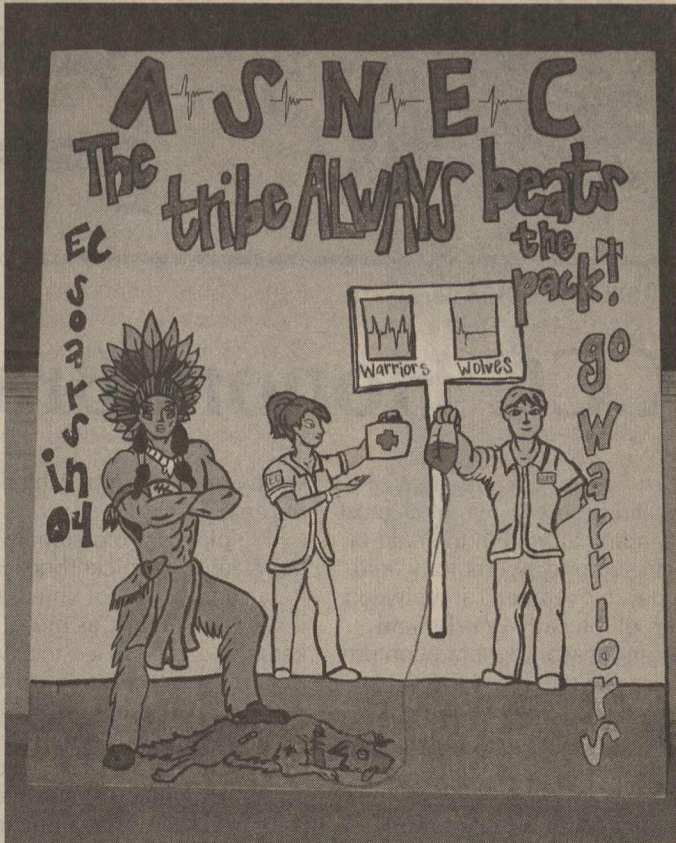 A S N E C
The tribe ALWAYS beats
the
pack!
EC
soars
in
04
Warriors Wolves
go
warriors